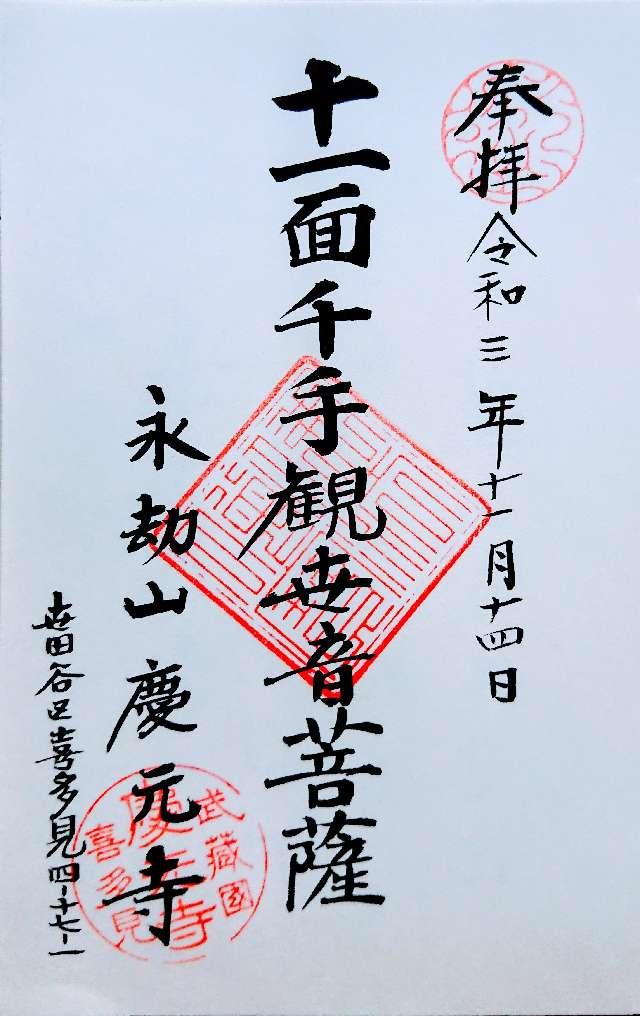 奉拝 令和三年十一月十四日
十一面千手観世音菩薩
永劫山 慶元寺
世田谷区喜多見四-十七-一
武藏國
慶元寺
喜多見